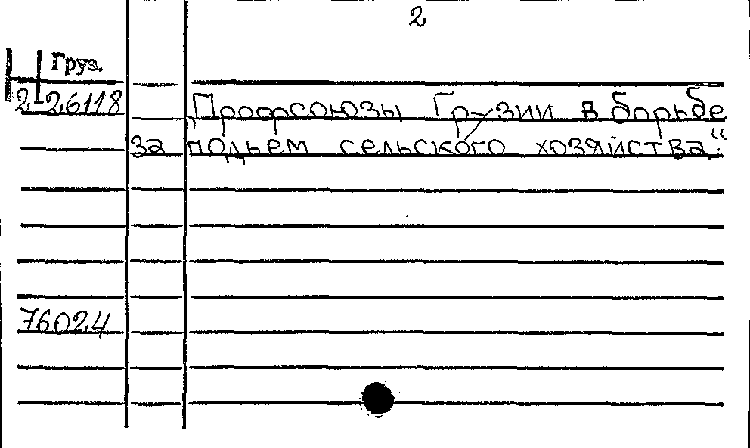 2
Груз.
2-26118 „Профсоюзы Грузии в борьбе
за подъем сельского хозяйства.“
76024